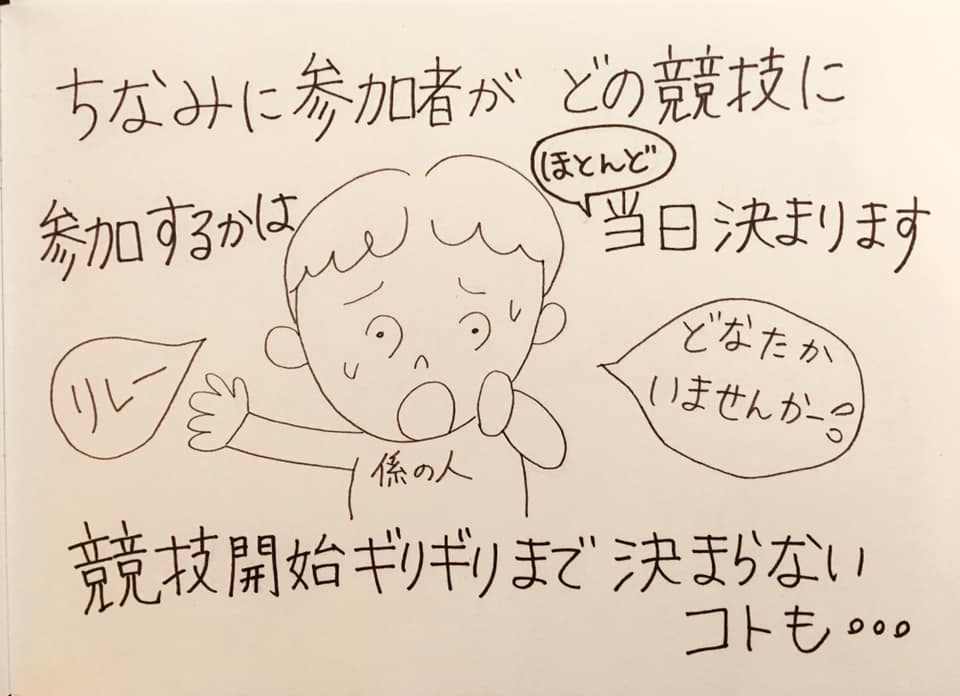 ちなみに参加者が どの競技に
ほとんど
参加するかは 当日決まります
リレー
どなたか
いませんかー
係の人
競技開始ギリギリまで決まらない
コトも・・・